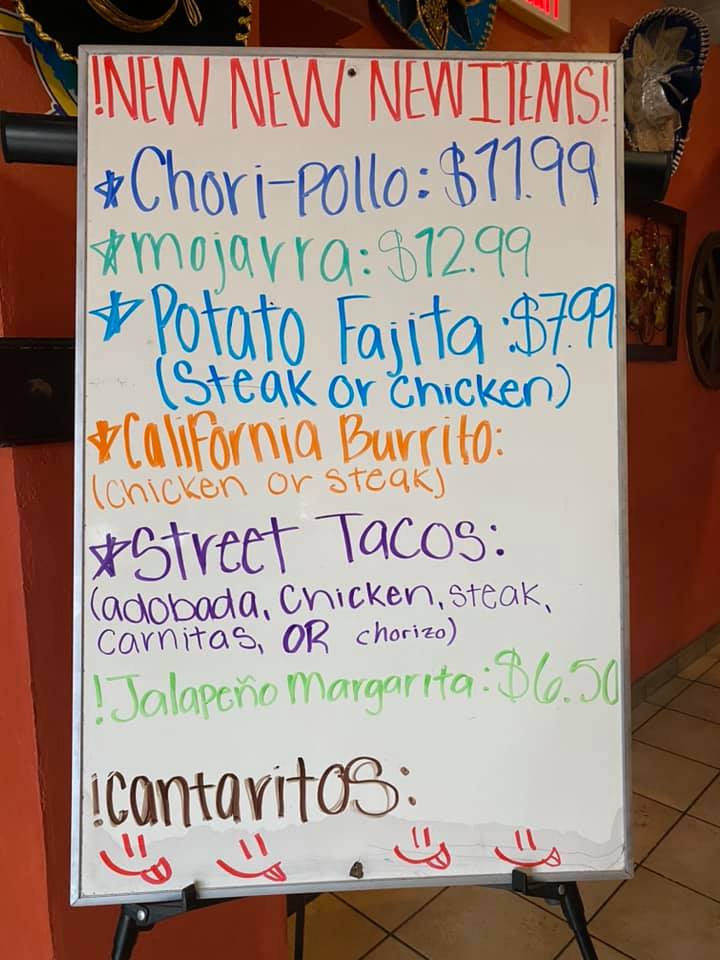 !NEW NEW NEW ITEMS!
*Chori-pollo: $11.99
*mojarra: $12.99
*Potato Fajita: $7.99
(Steak or chicken)
*California Burrito:
(chicken or steak)
*Street Tacos:
(adobada, chicken, steak,
carnitas, OR chorizo)
!Jalapeño Margarita: $6.50
!cantaritos: